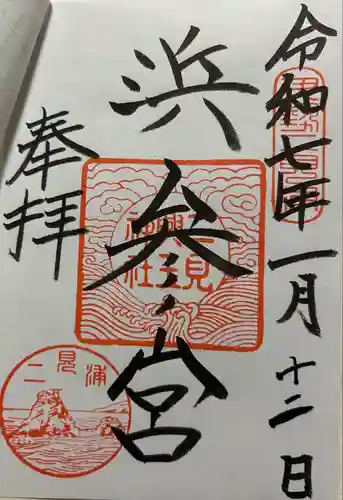 令和七年一月十二日
浜参ノ宮
奉拝
二見興玉神社
二見浦